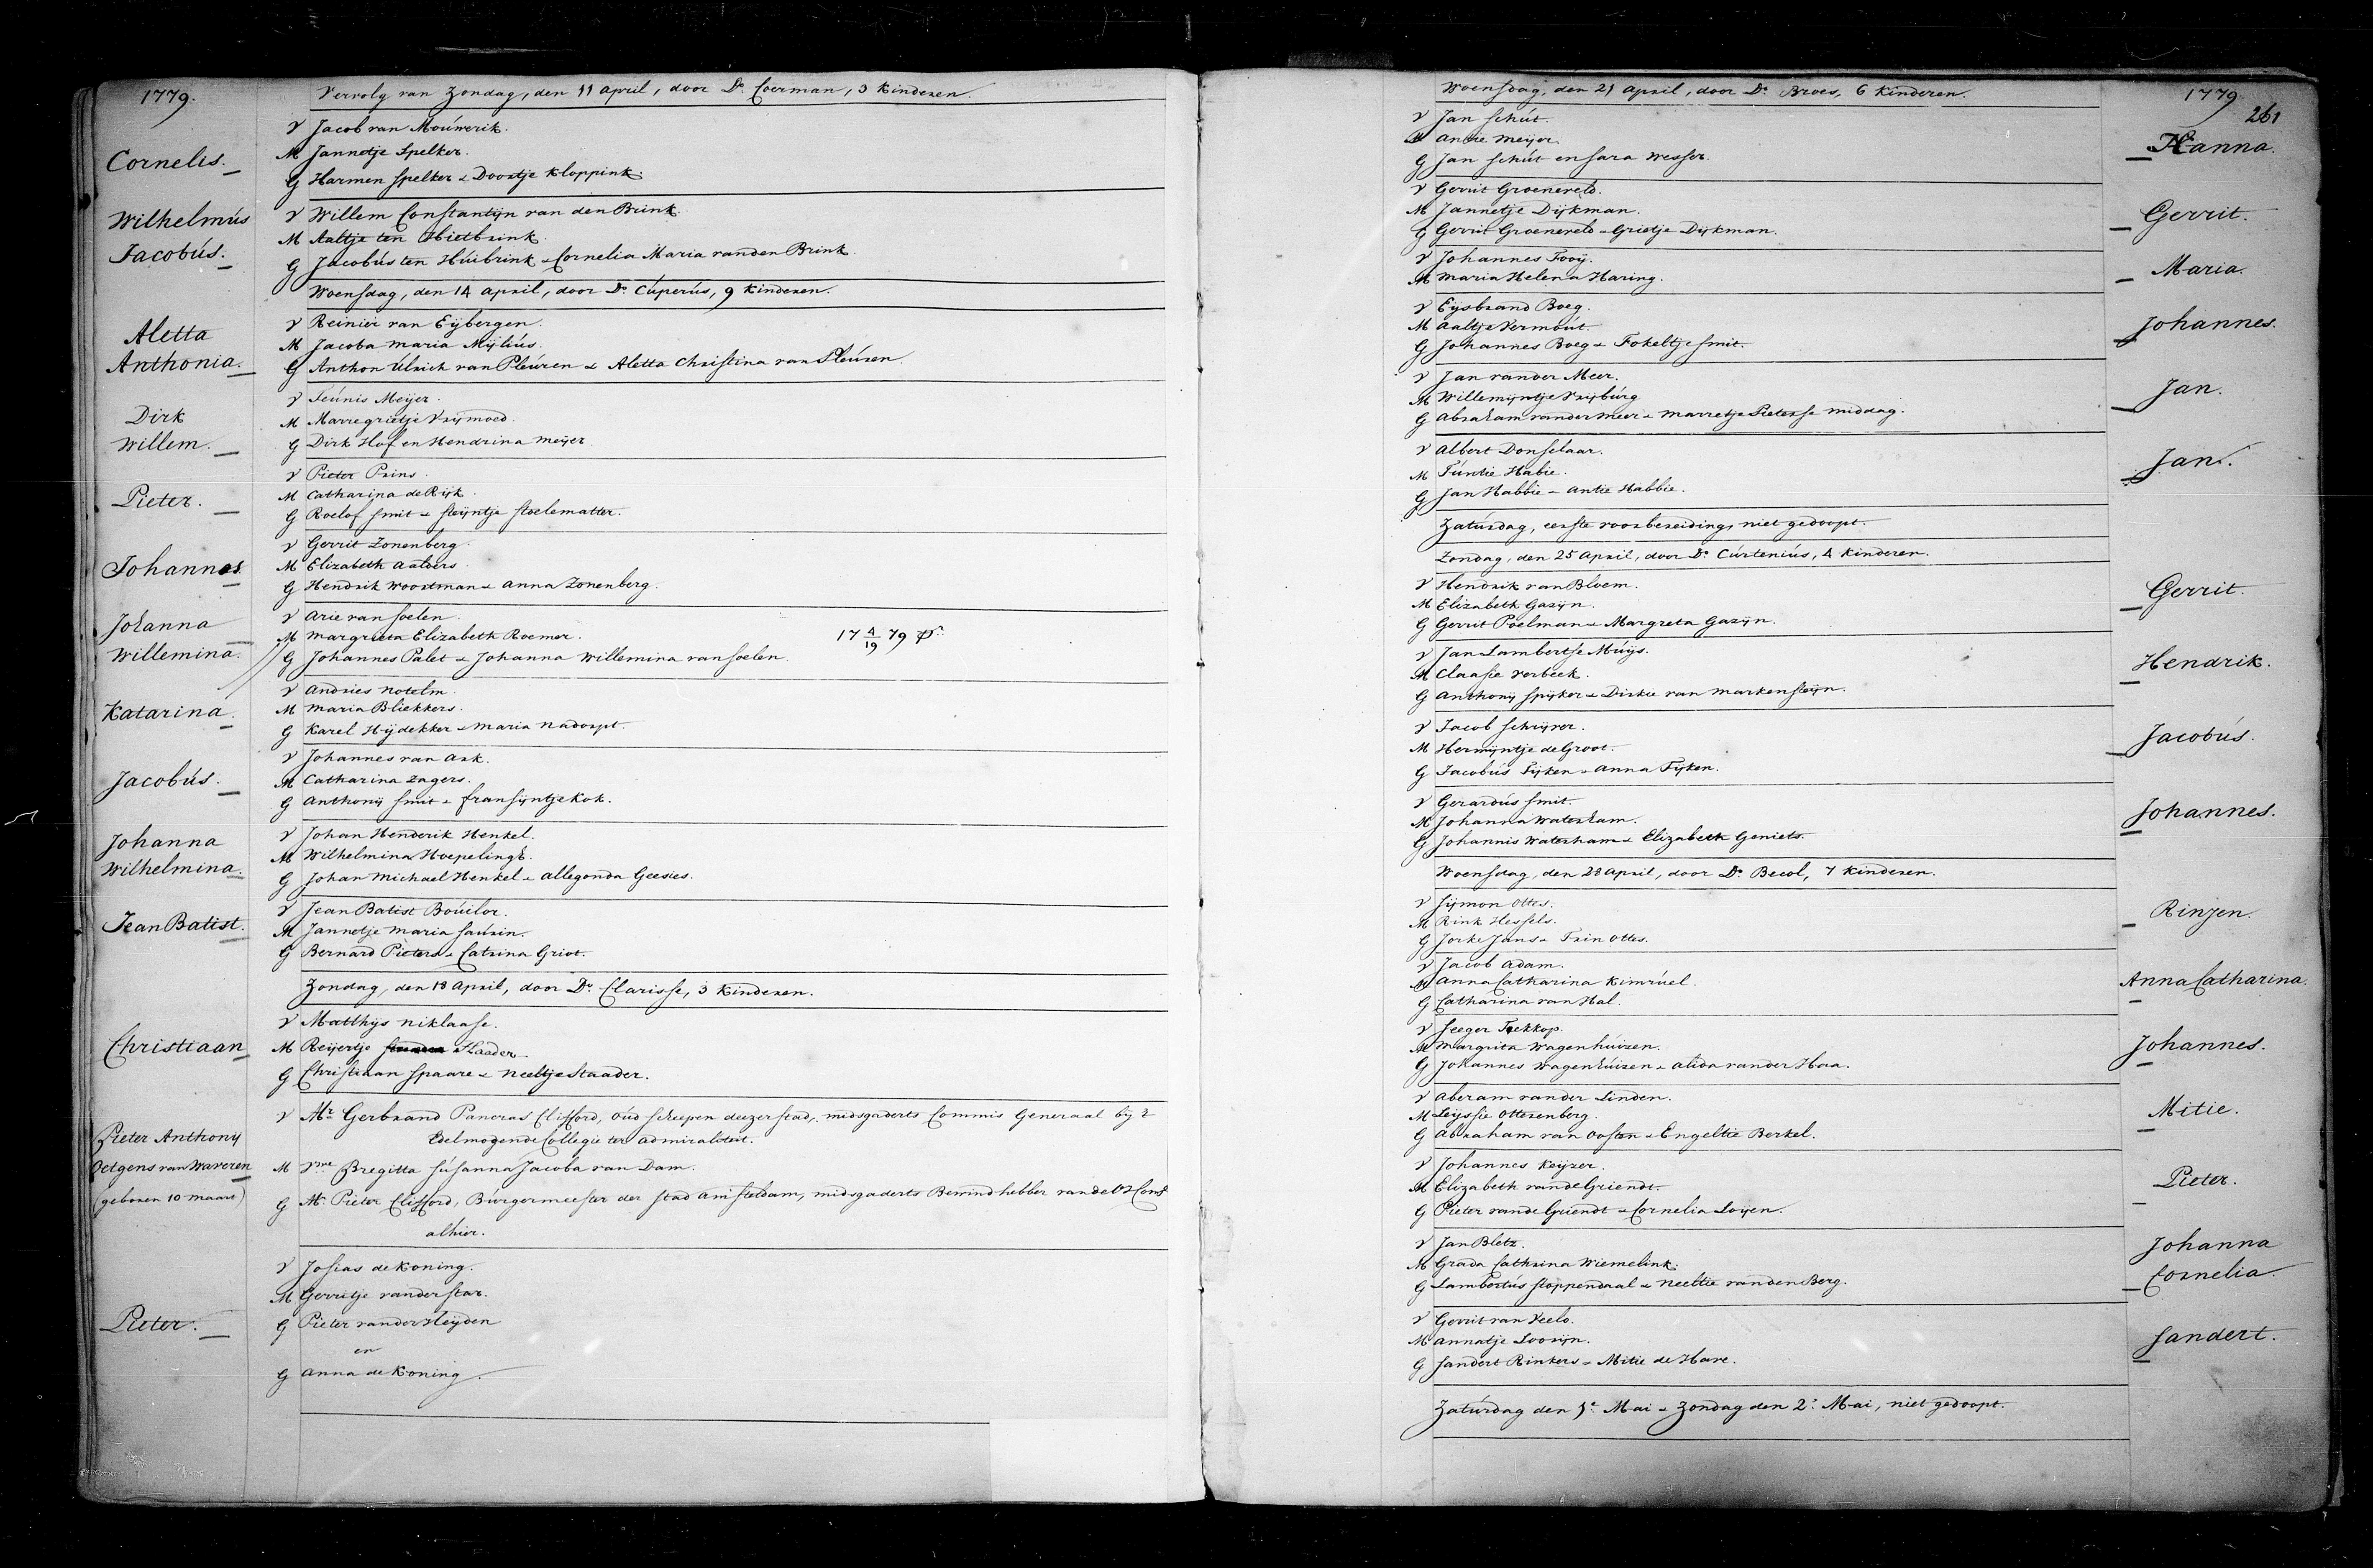 1779.
Vervolg van Zondag, den 11 April, door Ds. Coerman, 3 Kinderen.
V Jacob van Moúwerik.
Cornelis.
M Jannetje Spelker.
G Harmen Spelker & Doortje Kloppink.
Wilhelmús
Jacobús.
V Willem Constantijn van den Brink.
M Aaltje ten Hietbrink.
G Jacobús ten Húibrink & Cornelia Maria van den Brink.
Woensdag, den 14 April, door Ds. Cúperús, 9 Kinderen.
Aletta
Anthonia.
V Reinier van Eijbergen.
M Jacoba Maria Mijliús.
G Anthon Úlrich van Pleúren & Aletta Christina van Pleúren.
Dirk
Willem.
V Teúnis Meijer.
M Marregrietje Vrijmoed.
G Dirk Hof en Hendrina Meijer.
Pieter.
V Pieter Prins.
M Catharina de Rijk.
G Roelof Smit & Steijntje Stoelematter.
Johannes.
V Gerrit Zonenberg.
M Elizabeth Aalbers.
G Hendrik Woortman & Anna Zonenberg.
Johanna
Willemina.
V Arie van Soelen.
M Margrieta Elizabeth Roemer. 17 4/19 79
G Johannes Palet & Johanna Willemina van Soelen.
Katarina.
V Andries Notelm.
M Maria Bliekkers.
G Karel Hijdekker & Maria Nadorpt.
Jacobús.
V Johannes van Ark.
M Catharina Zagers.
G Anthonij Smit & Fransijntje Kok.
Johanna
Wilhelmina.
V Johan Henderik Henkel.
M Wilhelmina Hoepelingk.
G Johan Michael Henkel & Allegonda Geesies.
Jean Batist.
V Jean Batist Boúilor.
M Jannetje Maria Saurin.
G Bernard Pieters & Catrina Griot.
Zondag, den 18 April, door Ds. Clarisse, 3 Kinderen.
Christiaan
V Matthijs Niklaase.
M Reijertje Staader.
G Christiaan Spaare & Neeltje Staader.
Pieter Anthonij
Oetgens van Waveren
(geboren 10 maart)
V Mr. Gerbrand Pancras Clifford, Oúd Scheepen deezer stad, midsgaders Commis Generaal bij 't
Edelmogende Collegie ter admiraliteit.
M Vwe Bregitta Súsanna Jacoba van Dam.
G Mr. Pieter Clifford, Búrgermeester der stad Amsteldam, midsgaderts Bewindhebber van de
alhier.
Pieter.
V Josias de Koning.
M Gerritje van der Star.
G Pieter van der Heijden
en
G Anna de Koning.
1779
261
Woensdag, den 21 April, door Ds. Broes, 6 Kinderen.
V Jan Schút.
M Antie Meijer.
G Jan Schút en Sara Wesser.
Hanna.
V Gerrit Groeneveld.
M Jannetje Dijkman.
G Gerrit Groeneveld & Grietje Dijkman.
Gerrit.
V Johannes Fooij.
M Maria Helena Haring.
Maria.
V Eijsbrand Boeg.
M Aaltje Vermoút.
G Johannes Boeg & Fokeltje Smit.
Johannes.
V Jan van der Meer.
M Willemijntje Vrijbúrg
G Abraham van der Meer & Marretje Pieterse Middag.
Jan.
V Albert Donselaar.
M Túntie Habie.
G Jan Habbie & Antie Habbie.
Jan.
Zatúrdag, eerste voorbereiding, niet gedoopt.
Zondag, den 25 April, door Ds. Cúrteniús, 4 Kinderen.
V Hendrik van Bloem.
M Elizabeth Gazijn.
G Gerrit Poelman & Margreta Gazijn.
Gerrit.
V Jan Lambertse Múijs.
M Claasie Verbeek.
G Anthonij Spijker & Dirkie van Markensteijn.
Hendrik.
V Jacob Schrijver.
M Hermijntje de Groot.
G Jacobús Fijken & Anna Fijken.
Jacobús.
V Gerardús Smit.
M Johanna Waterham.
G Johannis Waterham & Elizabeth Geniets.
Johannes.
Woensdag, den 28 April, door Ds. Becol, 7 Kinderen.
V Sijmon Ottes.
M Rink Hessels.
G Jorke Jans & Trin Ottes.
Rinjen.
V Jacob Adam.
M Anna Catharina Kimrúel.
G Catharina van Hal.
Anna Catharina.
V Seeger Trekkop.
M Margrita Wagenhúizen.
G Johannes Wagenhúizen & Alida van der Haa.
Johannes.
V Aberam van der Linden.
M Leijssie Otterenberg.
G Abraham van Oosten & Engeltie Berkel.
Mitie.
V Johannes Keijzer.
M Elizabeth van de Griendt.
G Pieter van de Griendt & Cornelia Loijen.
Pieter.
V Jan Bletz.
M Grada Cathrina Wiemelink.
G Lambertús Stoppendaal & Neeltie van den Berg.
Johanna
Cornelia.
V Gerrit van Veeld.
M Annatje Loorijn.
G Sandert Rinkers & Mitie de Hare.
Sandert.
Zatúrdag den 1e. Mai & Zondag den 2e. Mai, niet gedoopt.